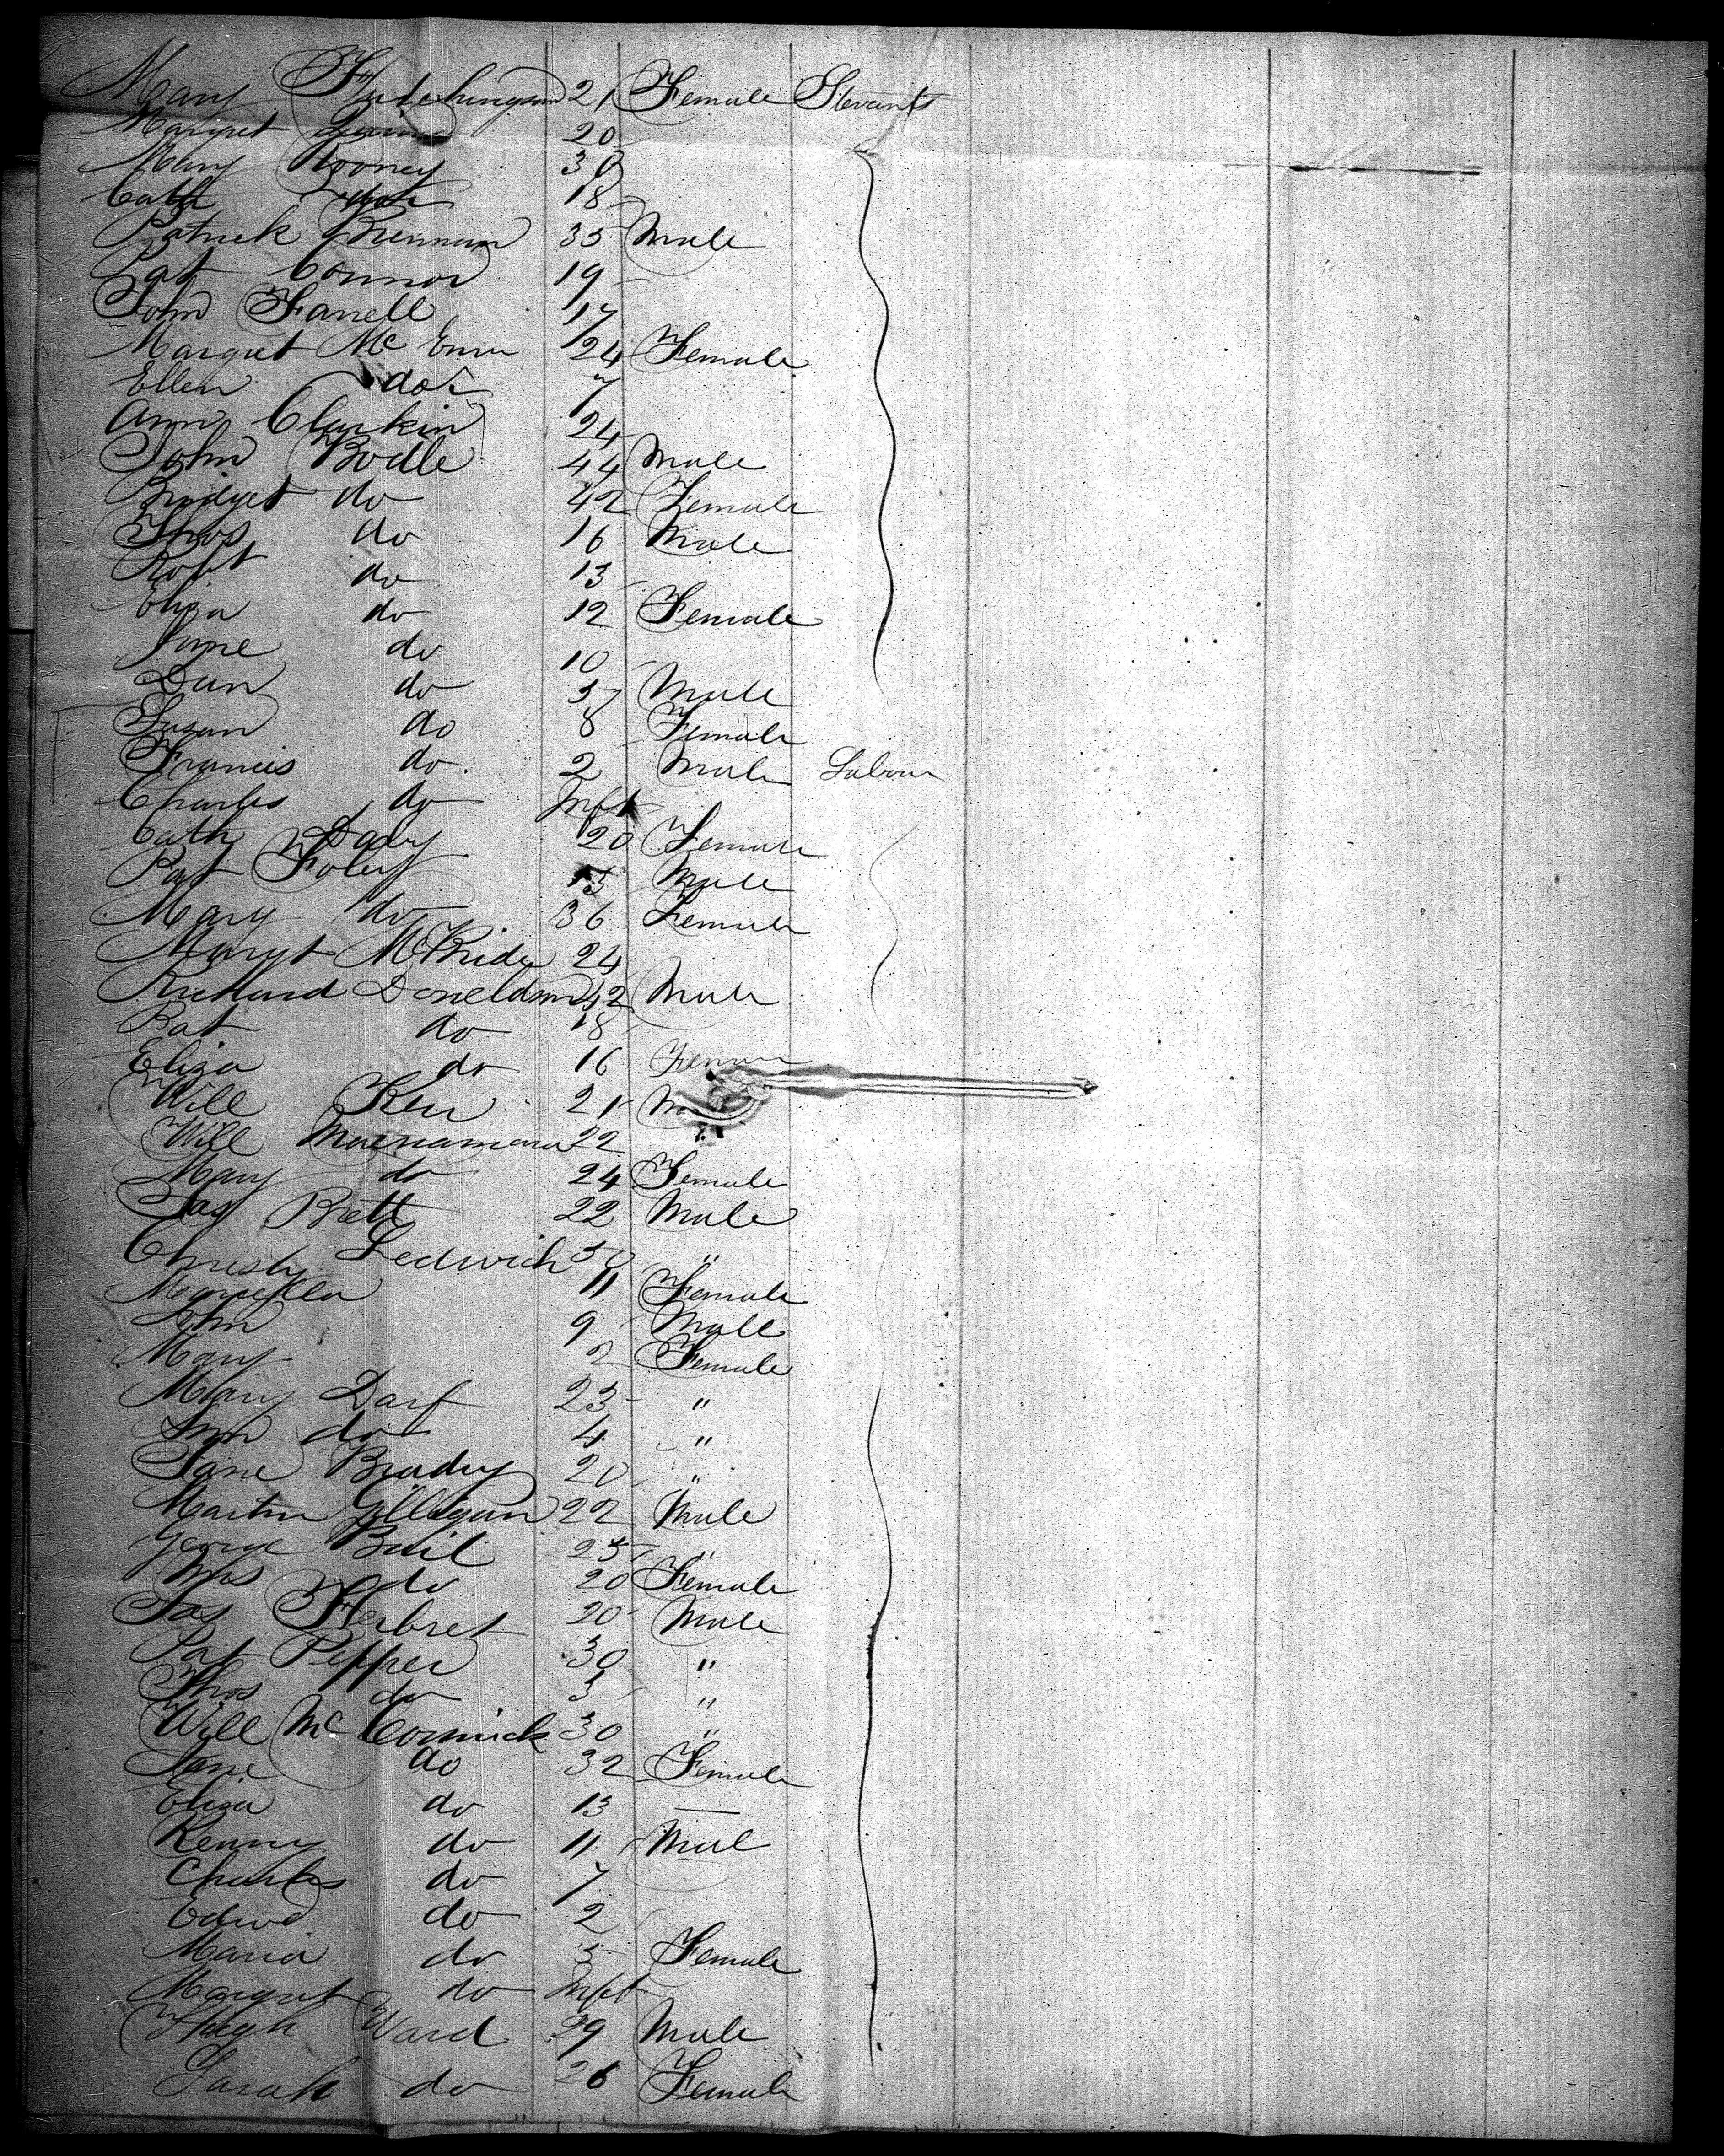 Mary Hutchingson 21 Female Servants
Margret 20
Mary Rooney 30
Cath do 18
Patrick Brennan 35 Male
Pat Connor 19
John Farrell 17
Margret Mc 24 Female
Ellen do 7
Ann Clarkin 24
John Bodle 44 Male
Bridget do 42 Female
Thos do 16 Male
Robt do 13
Eliza do 12 Female
Jane do 10
Dan do Male
Susan do 8 Female
Francis do 2 Male Labour
Charles do Inft
Cath Daly 20 Female
Pat Foley Male
Mary do 36 Female
Margt McBride 24
Richard Doneldson 42 Male
Pat do 18
Eliza do 16 Female
Will Kerr 21
Will Macnamara 22
Mary do 24 Female
Jas Brett 22 Male
Christy Ledwich 50 "
Marcella 11 Female
John 9 Male
Mary 2 Female
Mary Darf 23 "
Ann do 4 "
Jane Brady 20 "
Martin Gilligan 22 Male
George Bail 25 "
Mrs do 20 Female
Jas Herbret 20 Male
Pat Pepper 30 "
Thos do 3 "
Will McCormick 30 "
Jane do 32 Female
Eliza do 13
Kenny do 11 Mal
Charles do 7
Edwd do 2
Maria do 5 Female
Margret do Inft
Hugh Ward 29 Male
Sarah do 26 Female